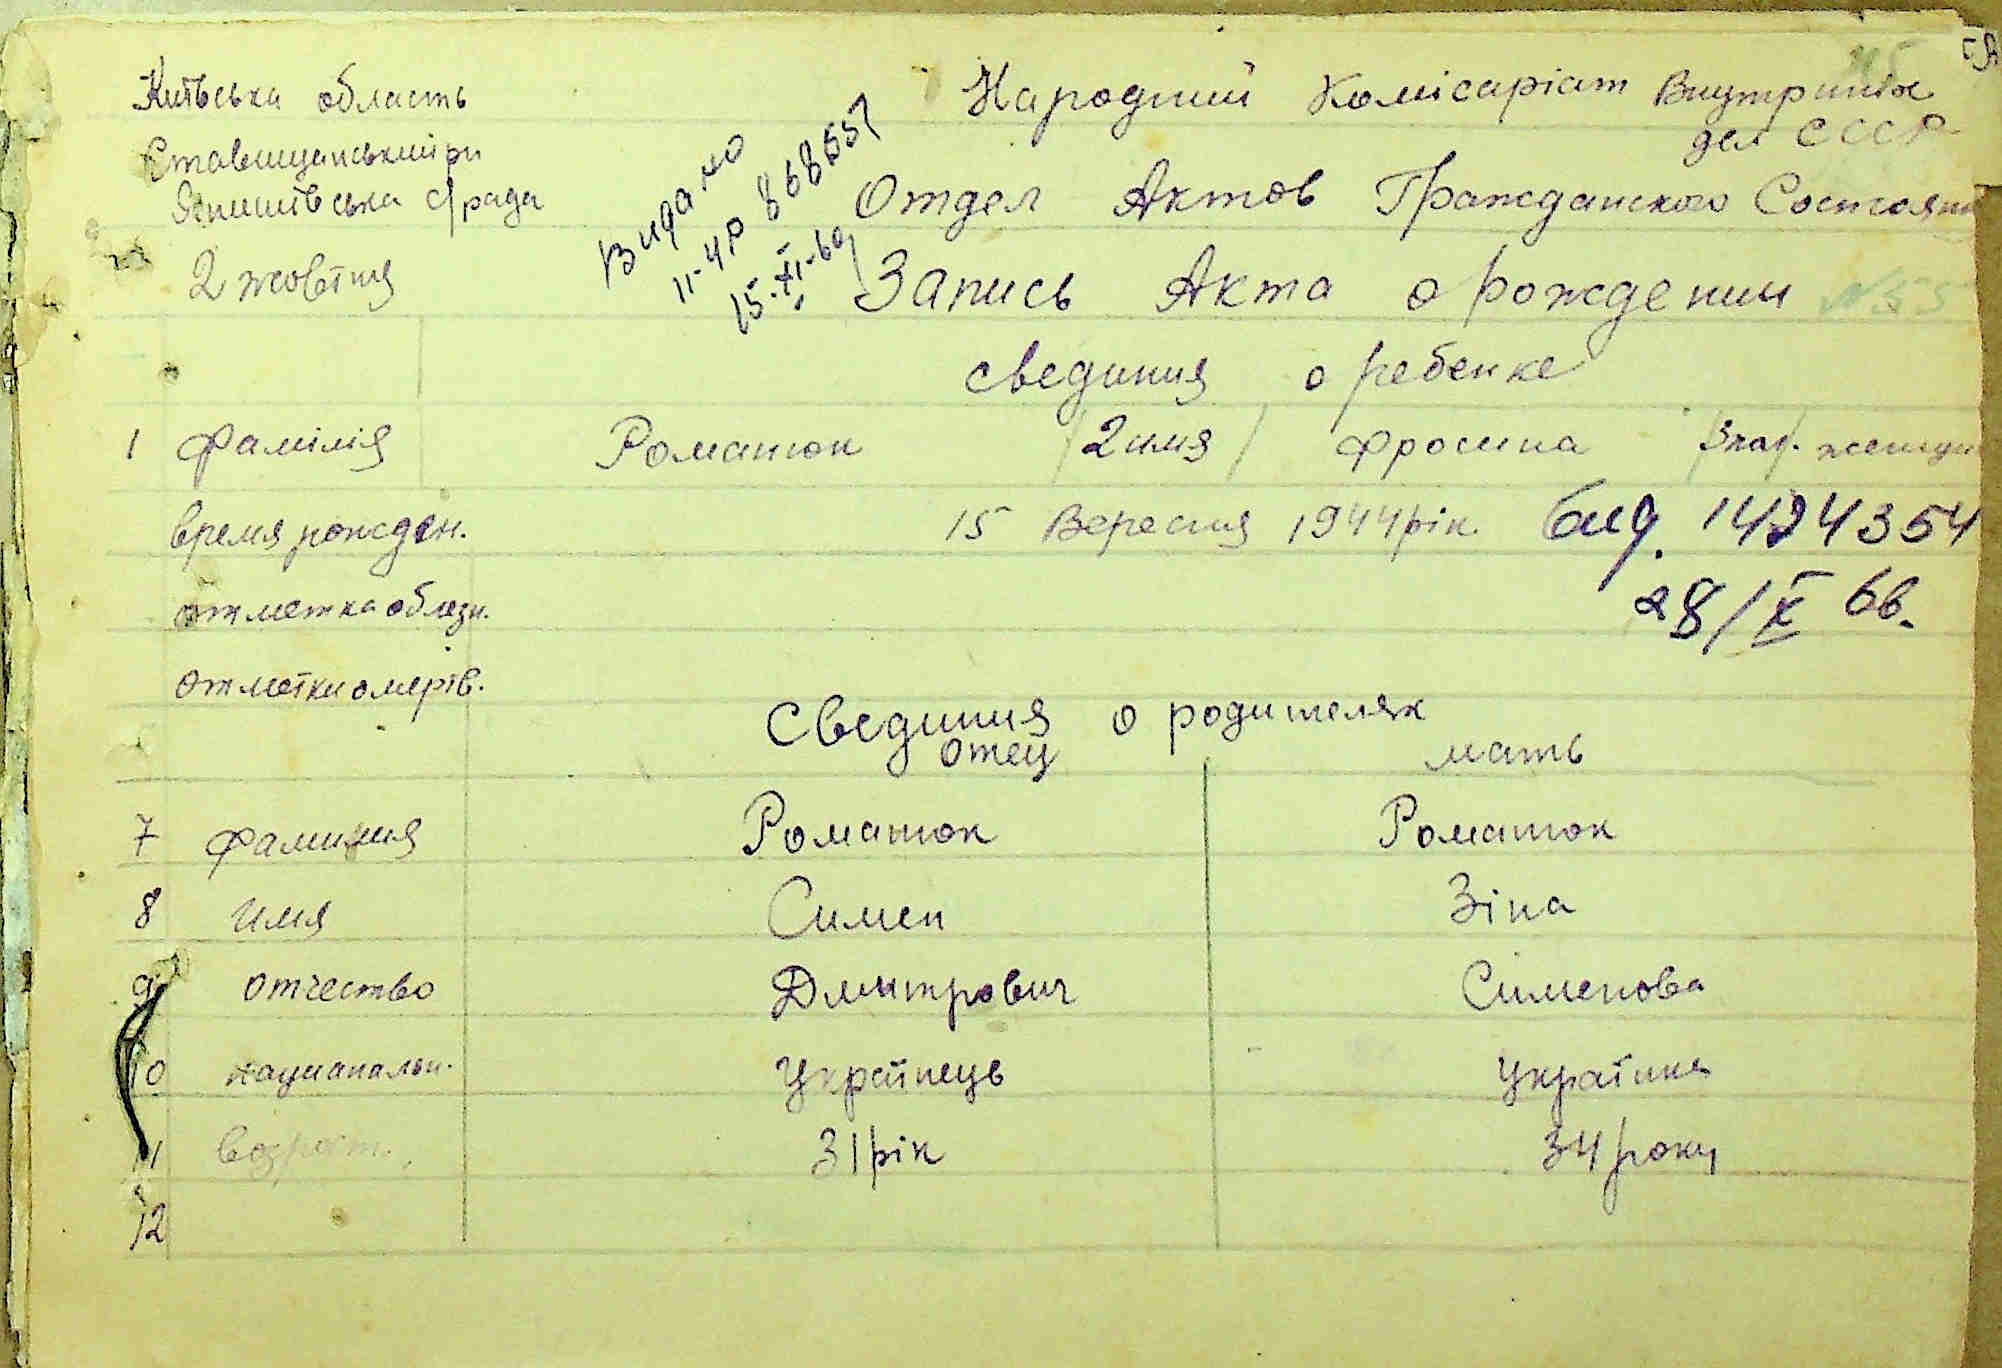 Київська область
Народний Комісаріат Внутрипніх
дел СССР
Ставищанський рн
Янишівська с/рада
Отдел Актов Гражданского Состояни
Видано
II-ЧР 868557
15-XI-60
2 жовтня
Запись Акта о рождении №55
свединия о ребенке
1 Фамілія Романюк /2 имя/ Фросина /3 пол/. женщи
время рожден. 15 Вересня 1944 рік.
вид. 1424354
28/X 66.
отметка о близн.
отметки о мертв.
Свединия о родителях
отец мать
7 Фамилия Романюк Романюк
8 имя Симен Зіна
9 отчество Дмытрович Сименова
10 национальн. Українець Українка
11 возраст. 31 рік 34 роки
12